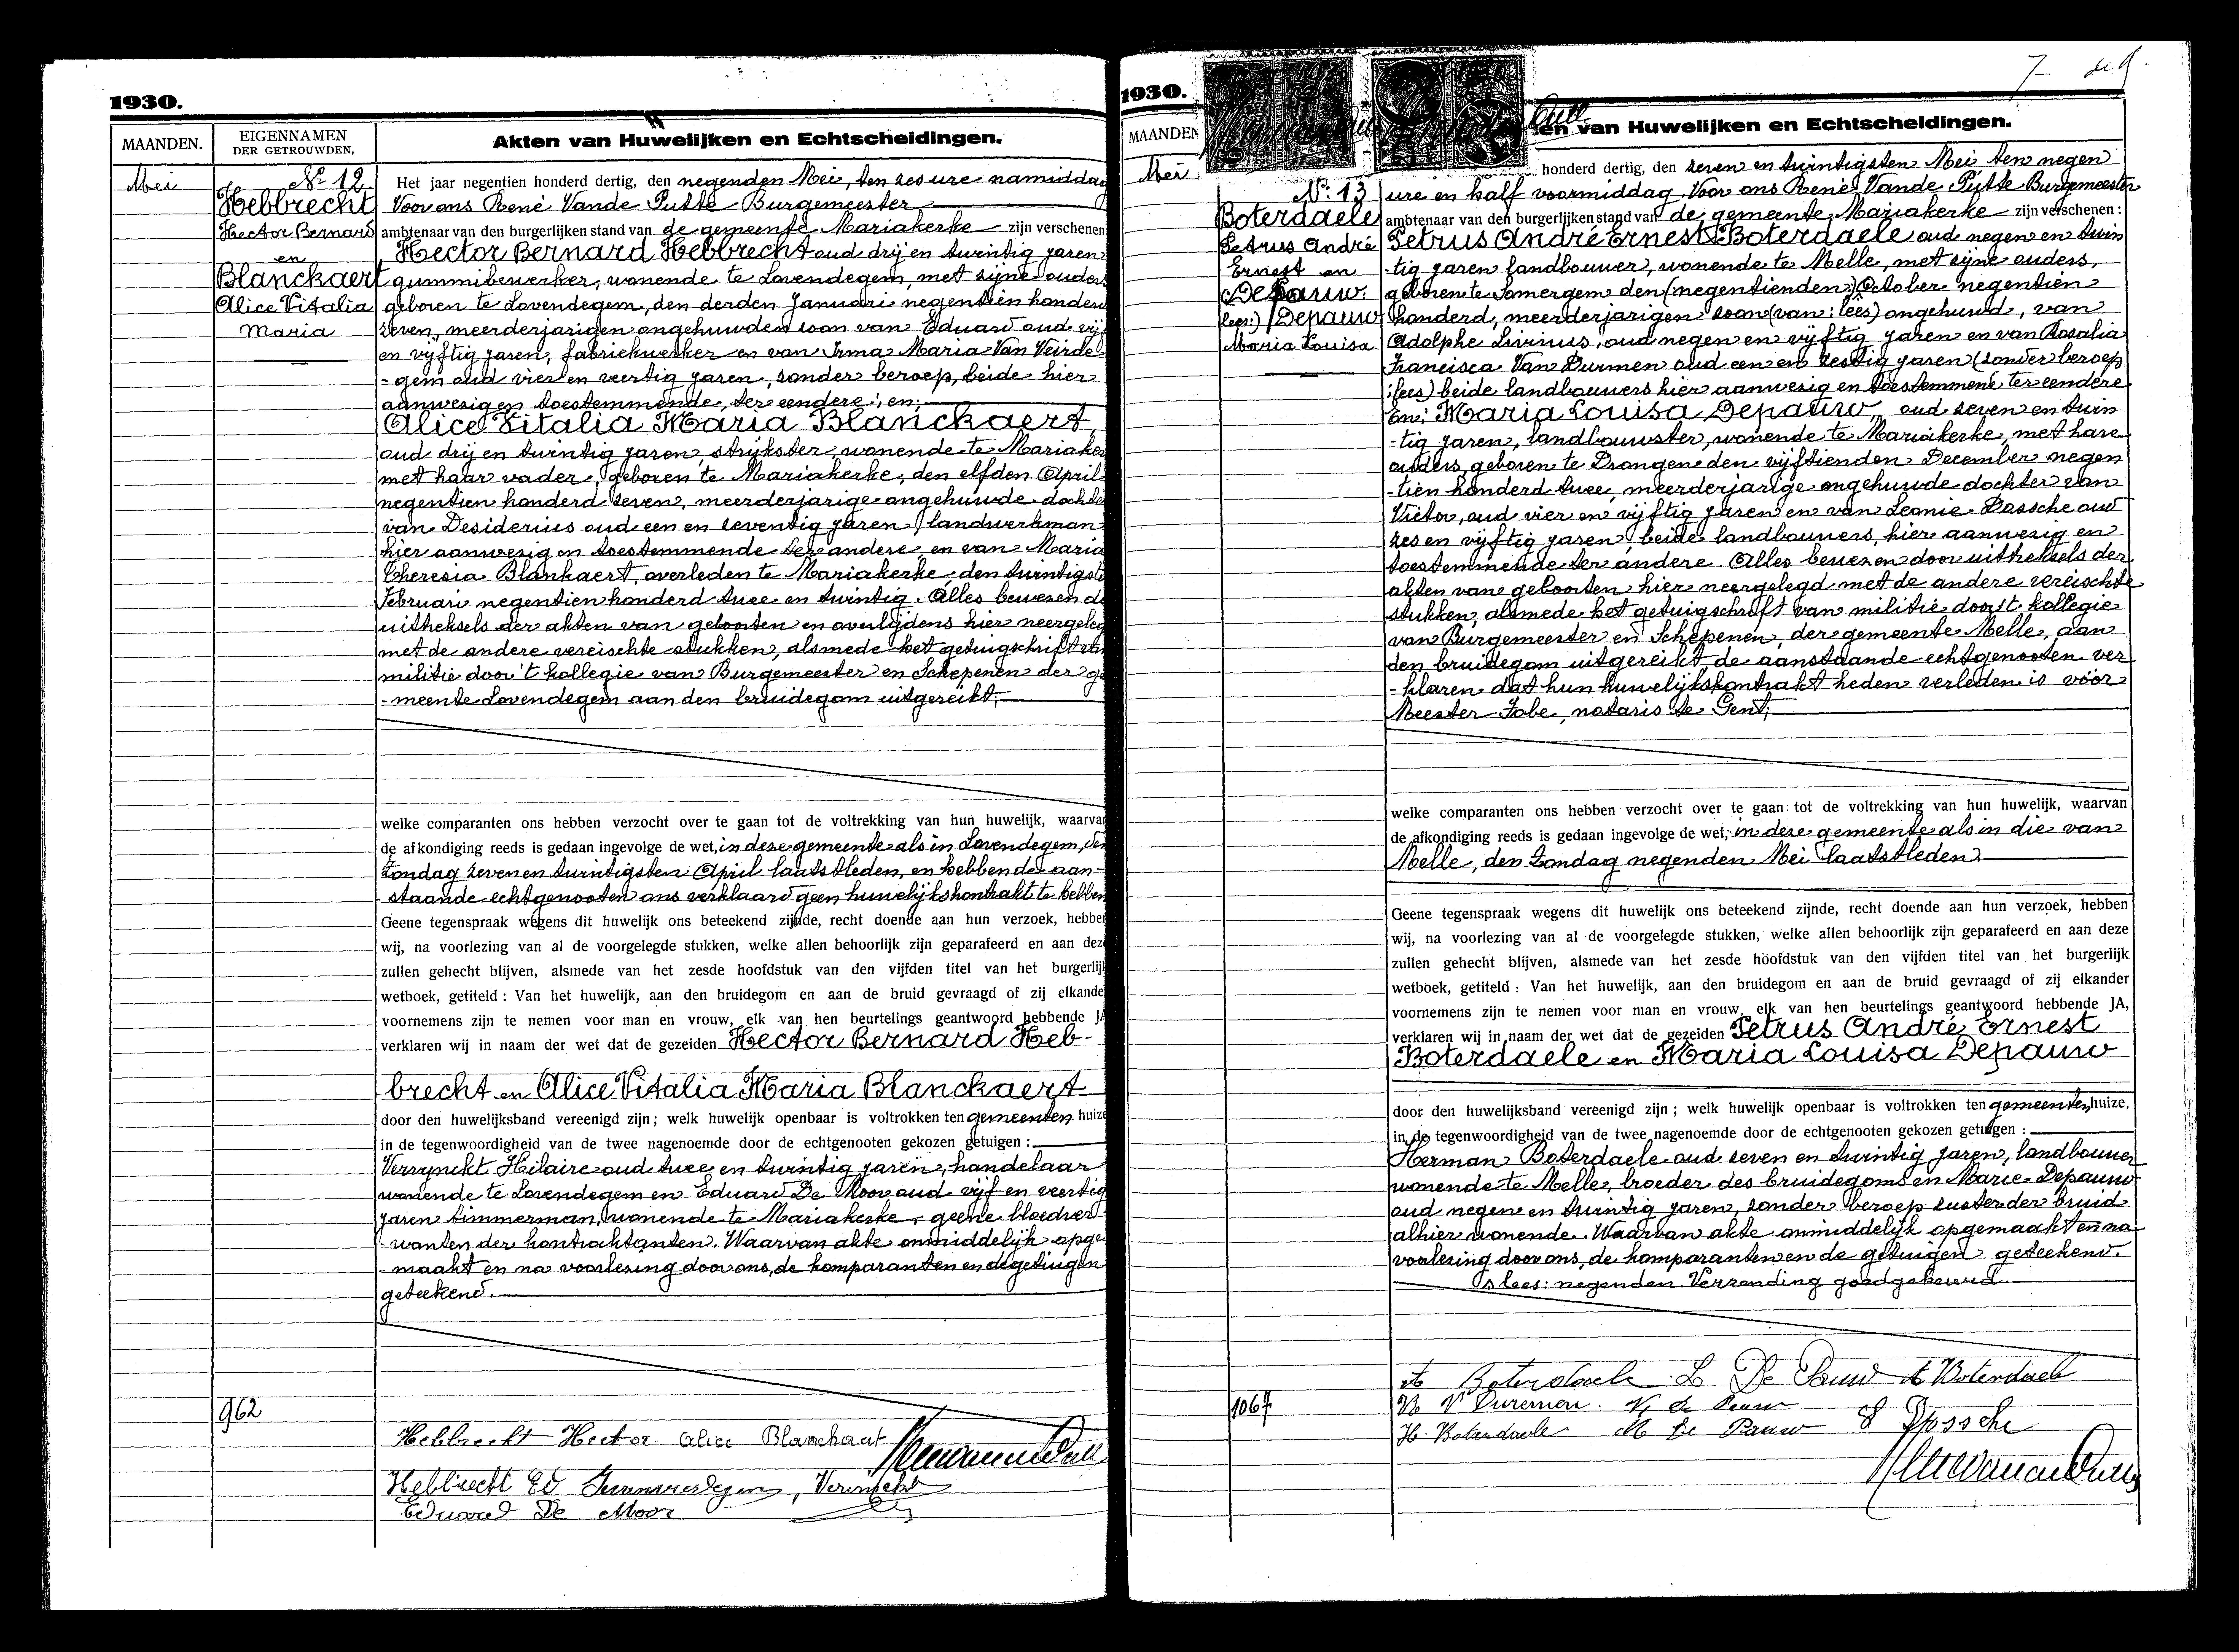 1930.
MAANDEN.
EIGENNAMEN
DER GETROUWDEN.
Akten van Huwelijken en Echtscheidingen.
Mei
No 12.
Hebbrecht
Hector Bernard
en
Blanckaert
Alice Vitalia
Maria
Het jaar negentien honderd dertig, den negenden Mei, ten zes ure namiddag
Voor ons René Vande Putte Burgemeester
ambtenaar van den burgerlijken stand van de gemeente Mariakerke zijn verschenen
Hector Bernard Hebbrecht oud drij en twintig jaren
gummibewerker, wonende te Lovendegem, met zijne ouders
geboren te Lovendegem, den derden Januari negentien honderd
zeven, meerderjarigen ongehuwden zoon van Eduard oud vijf
en vijftig jaren, fabriekwerker en van Irma Maria Van Veirde
-gem oud vier en veertig jaren, zonder beroep, beide hier
aanwezig en toestemmende, ter eendere; en;
Alice Vitalia Maria Blanckaert,
oud drij en twintig jaren, strijkster, wonende te Mariaker
met haar vader, geboren te Mariakerke, den elfden April
negentien honderd zeven, meerderjarige ongehuwde dochte
van Desiderius oud een en zeventig jaren, landwerkman
hier aanwezig en toestemmende ter andere, en van Maria
Theresia Blankaert, overleden te Mariakerke, den twintigste
Februari negentien honderd twee en twintig. Alles bewezen do
uittreksels der akten van geboorten en overlijdens hier neergeleg
met de andere vereischte stukken, alsmede het getuigschrift van
militie door 't kollegie van Burgemeester en Schepenen der ge
-meente Lovendegem aan den bruidegom uitgereikt;
welke comparanten ons hebben verzocht over te gaan tot de voltrekking van hun huwelijk, waarvan
de afkondiging reeds is gedaan ingevolge de wet, in deze gemeente als in Lovendegem, den
Zondag zeven en twintigsten April laatstleden, en hebben de aan-
-staande echtgenooten ons verklaard geen huwelijkskontrakt te hebben
Geene tegenspraak wegens dit huwelijk ons beteekend zijnde, recht doende aan hun verzoek, hebben
wij, na voorlezing van al de voorgelegde stukken, welke allen behoorlijk zijn geparafeerd en aan deze
zullen gehecht blijven, alsmede van het zesde hoofdstuk van den vijfden titel van het burgerlijk
wetboek, getiteld : Van het huwelijk, aan den bruidegom en aan de bruid gevraagd of zij elkander
voornemens zijn te nemen voor man en vrouw, elk van hen beurtelings geantwoord hebbende JA
verklaren wij in naam der wet dat de gezeiden Hector Bernard Heb-
brecht en Alice Vitalia Maria Blanckaert
door den huwelijksband vereenigd zijn; welk huwelijk openbaar is voltrokken ten gemeenten huize
in de tegenwoordigheid van de twee nagenoemde door de echtgenooten gekozen getuigen :
Versynckt Hilaire oud twee en twintig jaren, handelaar
wonende te Lovendegem en Eduard De Moor oud vijf en veertig
jaren timmerman, wonende te Mariakerke, geene bloedver
-wanten der kontraktanten. Waarvan akte onmiddelijk opge
-maakt en na voorlezing door ons, de komparanten en de getuigen
geteekend.
962
Hebbrecht Hector Alice Blanckaert
Hebbrecht Ed
Eduard De Moor
1930.
MAANDEN
en van Huwelijken en Echtscheidingen.
7
Mei
No: 13
Boterdaele
Petrus André
Ernest en
De Pauw.
lees:) Depauw
Maria Louisa
honderd dertig, den zeven en twintigsten Mei, ten negen
ure en half voormiddag, Voor ons René Vande Putte Burgemeester
ambtenaar van den burgerlijken stand van de gemeente Mariakerke zijn verschenen :
Petrus André Ernest Boterdaele oud negen en twin
-tig jaren landbouwer, wonende te Melle, met zijne ouders,
geboren te Somergem den (negentienden) October negentien
honderd, meerderjarigen zoon (van: lees) ongehuwd, van
Adolphe Livinus, oud negen en vijftig jaren en van Rosalia
Francisca Van Durmen oud een en zestig jaren (zonder beroep
:lees) beide landbouwers hier aanwezig en toestemmend ter eendere
en; Maria Louisa Depauw, oud zeven en twin
-tig jaren, landbouwster, wonende te Mariakerke, met hare
ouders, geboren te Drongen den vijftienden December negen
-tien honderd twee, meerderjarige ongehuwde dochter van
Victor, oud vier en vijftig jaren en van Leonie Dassche oud
zes en vijftig jaren, beide landbouwers, hier aanwezig en
toestemmende ter andere. Alles bewezen door uittreksels der
akten van geboorten hier neergelegd met de andere vereischte
stukken, alsmede het getuigschrift van militie door 't kollegie
van Burgemeester en Schepenen, der gemeente Melle, aan
den bruidegom uitgereikt, de aanstaande echtgenooten ver
-klaren dat hun huwelijkskontrakt heden verleden is voor
Meester Fobe, notaris te Gent;
welke comparanten ons hebben verzocht over te gaan tot de voltrekking van hun huwelijk, waarvan
de afkondiging reeds is gedaan ingevolge de wet, in deze gemeente als in die van
Melle, den Zondag negenden Mei laatstleden.
Geene tegenspraak wegens dit huwelijk ons beteekend zijnde, recht doende aan hun verzoek, hebben
wij, na voorlezing van al de voorgelegde stukken, welke allen behoorlijk zijn geparafeerd en aan deze
zullen gehecht blijven, alsmede van het zesde hoofdstuk van den vijfden titel van het burgerlijk
wetboek, getiteld : Van het huwelijk, aan den bruidegom en aan de bruid gevraagd of zij elkander
voornemens zijn te nemen voor man en vrouw, elk van hen beurtelings geantwoord hebbende JA,
verklaren wij in naam der wet dat de gezeiden Petrus André Ernest
Boterdaele en Maria Louisa Depauw
door den huwelijksband vereenigd zijn; welk huwelijk openbaar is voltrokken ten gemeenten huize,
in de tegenwoordigheid van de twee nagenoemde door de echtgenooten gekozen getuigen :
Herman Boterdaele oud zeven en twintig jaren, landbouwer
wonende te Melle, broeder des bruidegoms en Marie Depauw
oud negen en twintig jaren, zonder beroep zuster der bruid
alhier wonende. Waarvan akte onmiddelijk opgemaakt en na
voorlezing door ons, de komparanten en de getuigen geteekend.
lees: negenden. Verzending goedgekeurd.
1067
Boterdaele L De Pauw A Boterdaele
R V Duremen. V. de Pauw
H. Boterdaele M De Pauw